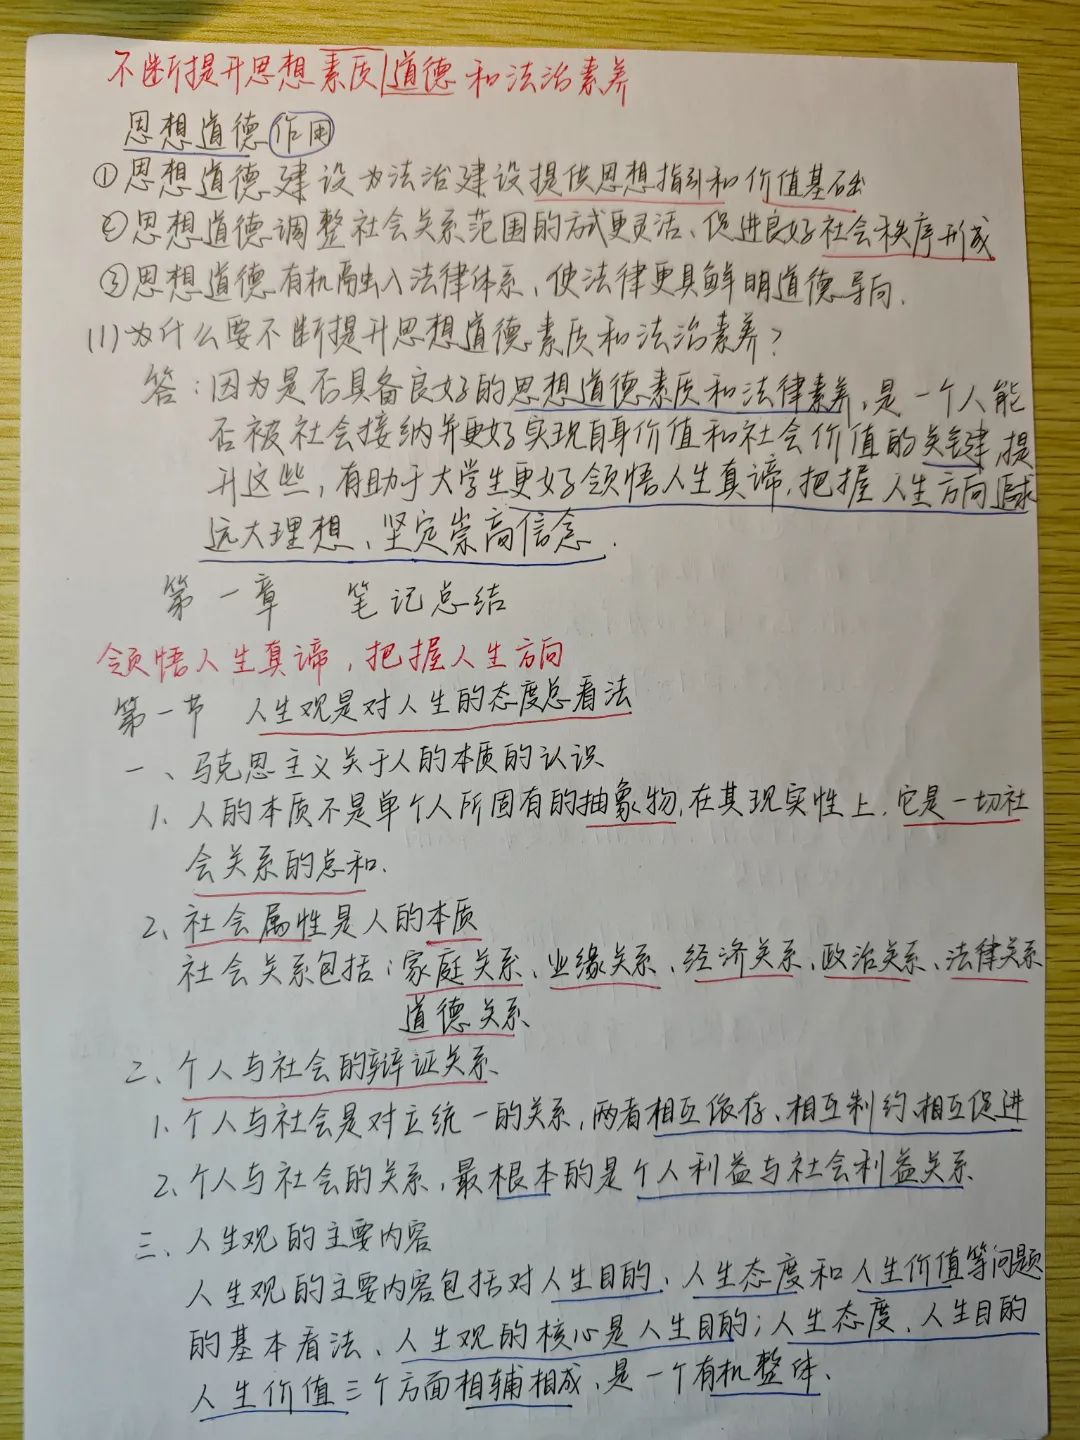 不断提升思想素质道德和法治素养
思想道德作用
①思想道德建设为法治建设提供思想指引和价值基础
②思想道德调整社会关系范围的方式更灵活、促进良好社会秩序形成
③思想道德有机融入法律体系、使法律更具鲜明道德导向.
(1)为什么要不断提升思想道德素质和法治素养?
答:因为是否具备良好的思想道德素质和法律素养,是一个人能
否被社会接纳并更好实现自身价值和社会价值的关键,提
升这些,有助于大学生更好领悟人生真谛,把握人生方向追求
远大理想、坚定崇高信念.
第一章 笔记总结
领悟人生真谛,把握人生方向
第一节 人生观是对人生的态度总看法
一、马克思主义关于人的本质的认识
1、人的本质不是单个人所固有的抽象物,在其现实性上,它是一切社
会关系的总和.
2、社会属性是人的本质
社会关系包括:家庭关系、业缘关系、经济关系、政治关系、法律关系
道德关系
二、个人与社会的辩证关系
1、个人与社会是对立统一的关系,两者相互依存、相互制约、相互促进
2、个人与社会的关系,最根本的是个人利益与社会利益关系
三、人生观的主要内容
人生观的主要内容包括对人生目的、人生态度和人生价值等问题
的基本看法、人生观的核心是人生目的;人生态度、人生目的
人生价值三个方面相辅相成,是一个有机整体、